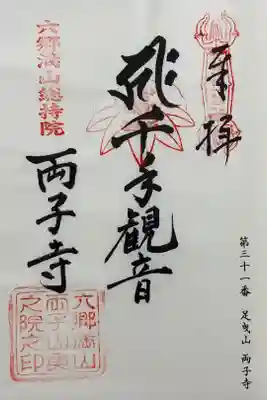 奉拝
千手観音
両子寺
六郷満山総持院
第三十一番 足曳山 両子寺
六郷満山
両子山奥
之院之印